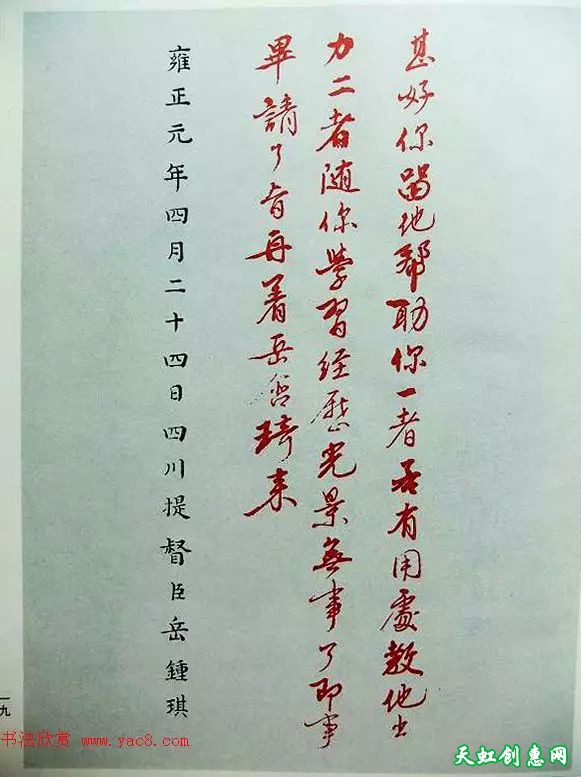 甚好你留他帮助你一者若有用處教他出
力二者随你學習經歷光景無事了即事
畢請了旨再着岳濬琦来
雍正元年四月二十四日四川提督臣岳鍾琪
一九
书法欣赏 www.yac8.com
天虹创意网